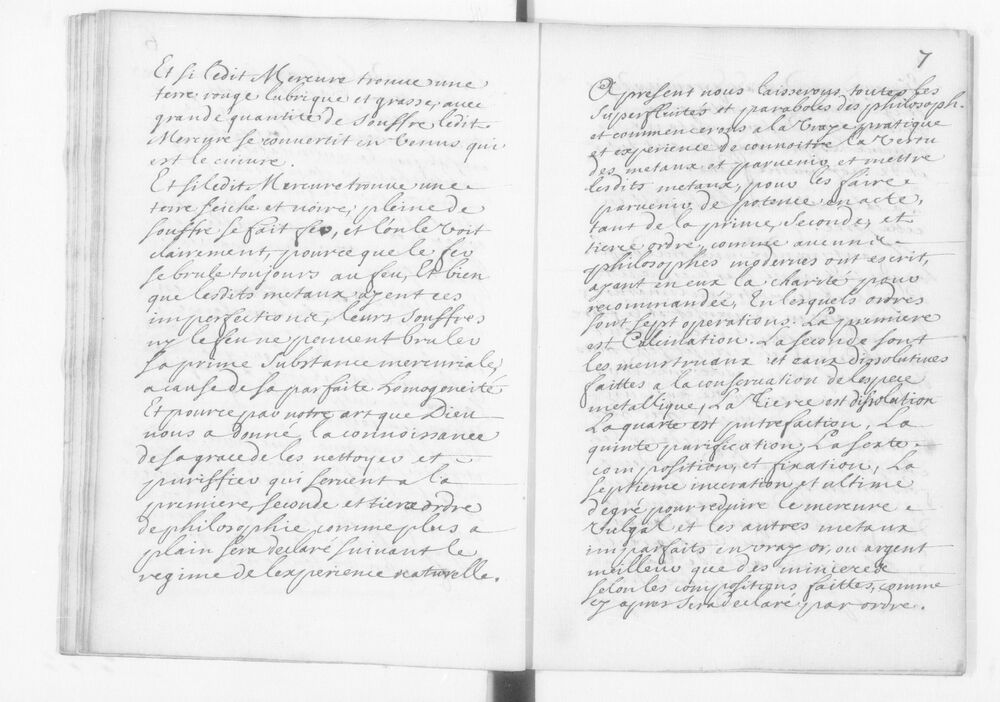 Et si ledit Mercure trouve une
terre rouge lubrique et grasse, avec
grande quantité de souffre ledit
Mercure se convertit en Venus qui
est le cuivre.
Et si ledit Mercure trouve une
terre seiche et noire, pleine de
souffre se fait fer, et l'on le voit
clairement, pource que le fer
se brule toujours au feu, Et bien
que lesdits metaux ayent ces
imperfections, leurs souffres
ny le feu ne peuvent bruler
sa prime substance mercuriale,
a cause de sa parfaite homogeneité
Et pource par notre art que Dieu
nous a donné la connoissance
de sa grace de les nettoyer et
puriffier qui servent a la
premiere, seconde et tierce ordre
de philosophie, comme plus a
plain sera declaré suivant le
regime de l'experience naturelle.
7
A present nous laisserons toutes ses
superfluités et paraboles des philosoph.
et commencerons a la vraye pratique
et experience de connoitre la vertu
des metaux et parvenir et mettre
lesdits metaux, pour les faire
parvenir de potence en acte,
tant de la prime, seconde, et
tierce ordre, comme aucuns
philosophes modernes ont escrit,
ayant en eux la charité pour
recommandée, En lesquels ordres
sont sept operations. La premiere
est Calcination. La seconde sont
les menstruaux et eaux dissolutives
faittes a la conservation de l'espece
metallique, La Tierce est dissolution
La quarte est putrefaction, La
quinte purification, La sexte
composition, et fixation, La
septieme inceration et ultime
degré pour reduire le mercure
vulgal et les autres metaux
imparfaits en vray or, ou argent
meilleur que des minieres
selon les compositions faittes, comme
cy apres sera declaré par ordre.